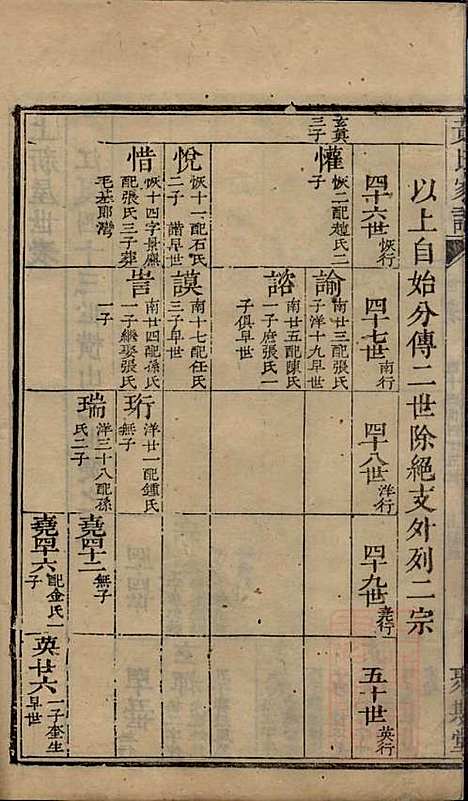 以上自始分傳二世除絕支外列二宗
四十六世 恢行
四十七世 南行
四十八世 洋行
四十九世 堯行
五十世 英行
玄眞三子
懽 恢二配趙氏二子
諭 南廿三配張氏一子洋十九早世
諮 南廿五配陳氏一子庶張氏一子俱早世
悅 恢十一配石氏二子 諧早世
謨 南十七配任氏三子早世
惜 恢十四字景應配張氏三子葬毛基耶灣
訔 南廿四配孫氏一子繼娶張氏一子
珩 洋廿一配鍾氏無子
瑞 洋三十八配孫氏二子
堯四十二 無子
堯四十六 配金氏一子
英廿六 一子奎生早世
黃氏家譜
聚
堂